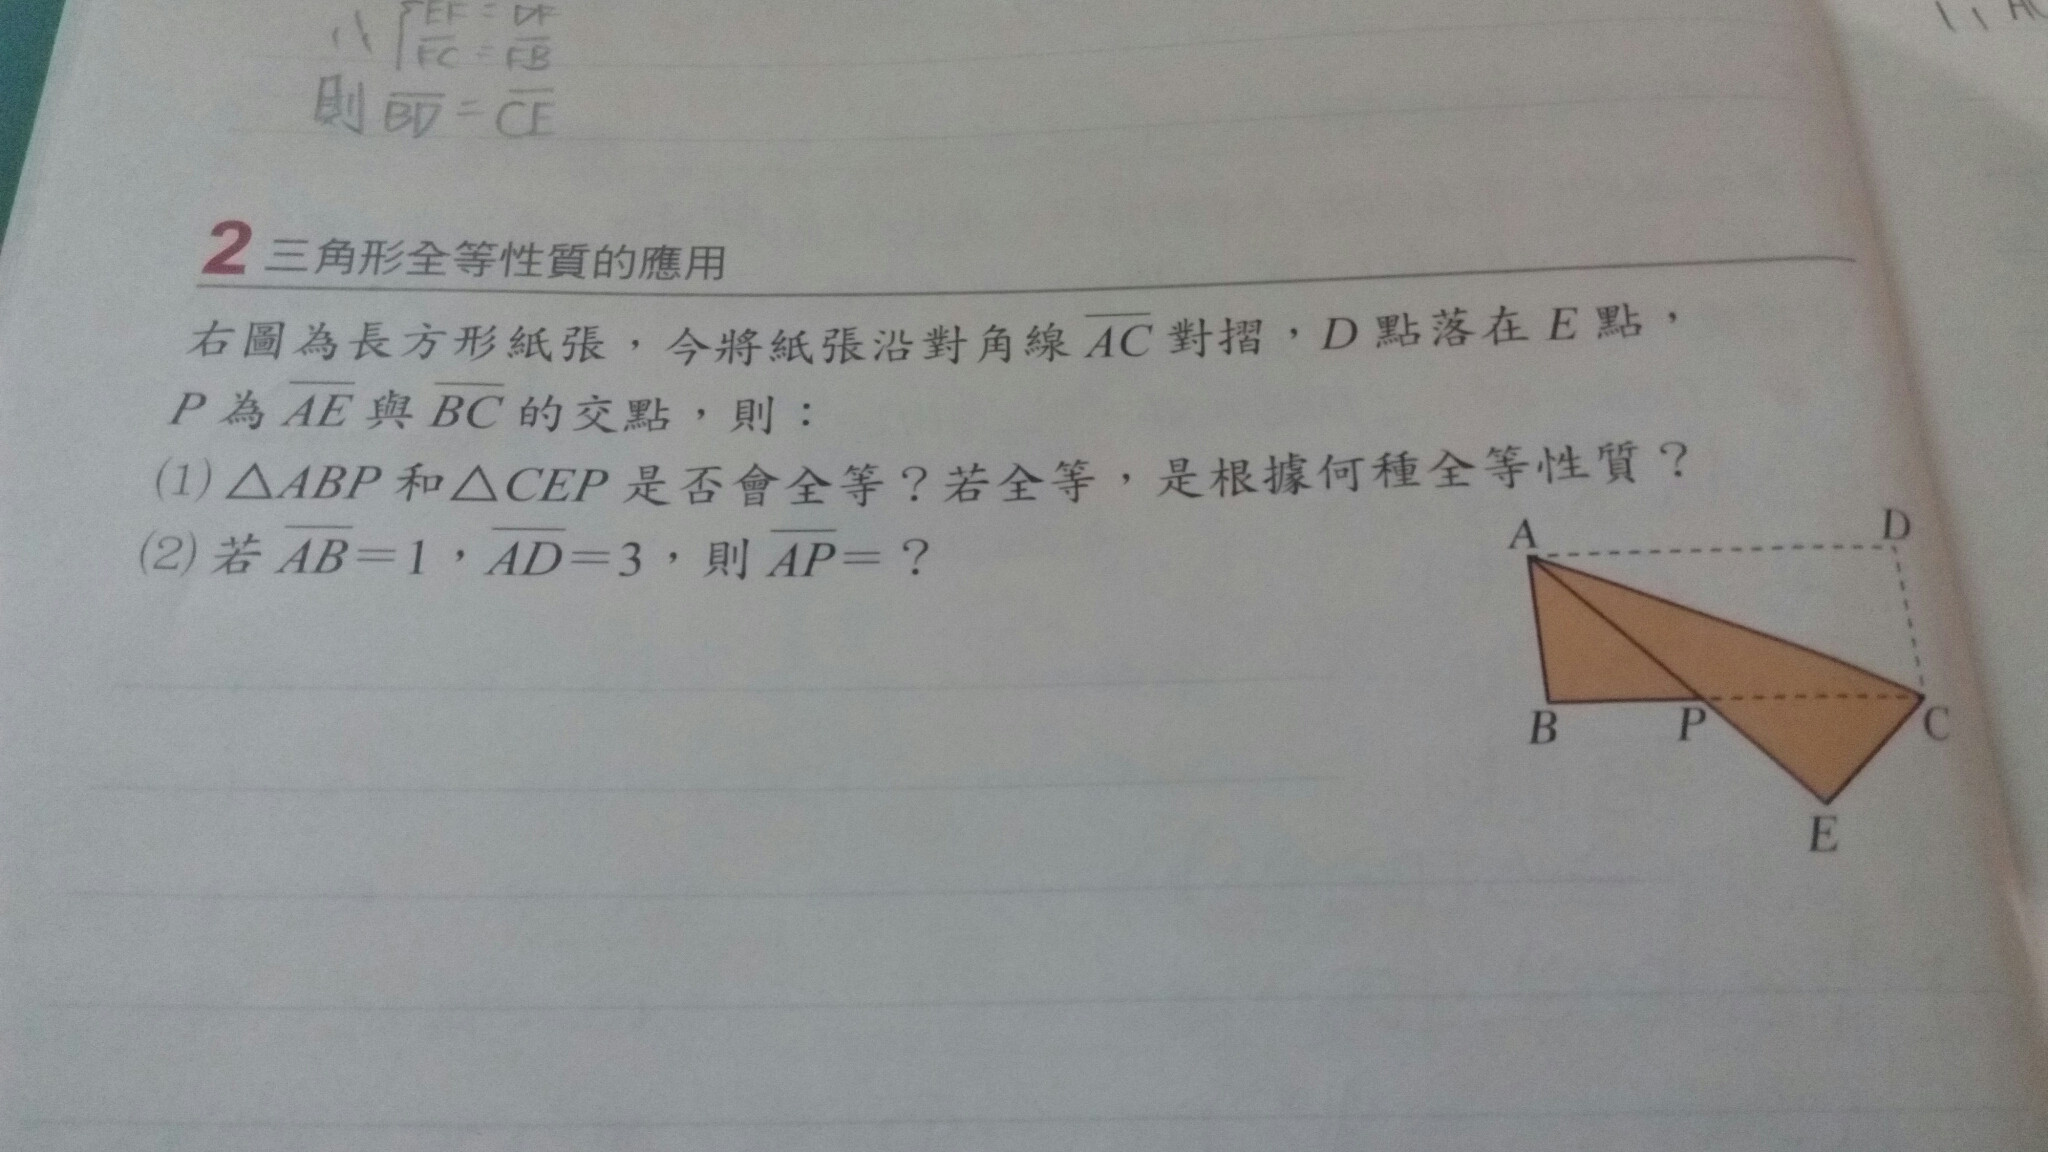 ∴ EF = DF
FC = FB
則 BD = CE
2 三角形全等性質的應用
右圖為長方形紙張，今將紙張沿對角線 AC 對摺，D 點落在 E 點，
P 為 AE 與 BC 的交點，則：
(1) △ABP 和△CEP 是否會全等？若全等，是根據何種全等性質？
(2) 若 AB＝1，AD＝3，則 AP＝？
A
D
B
P
C
E